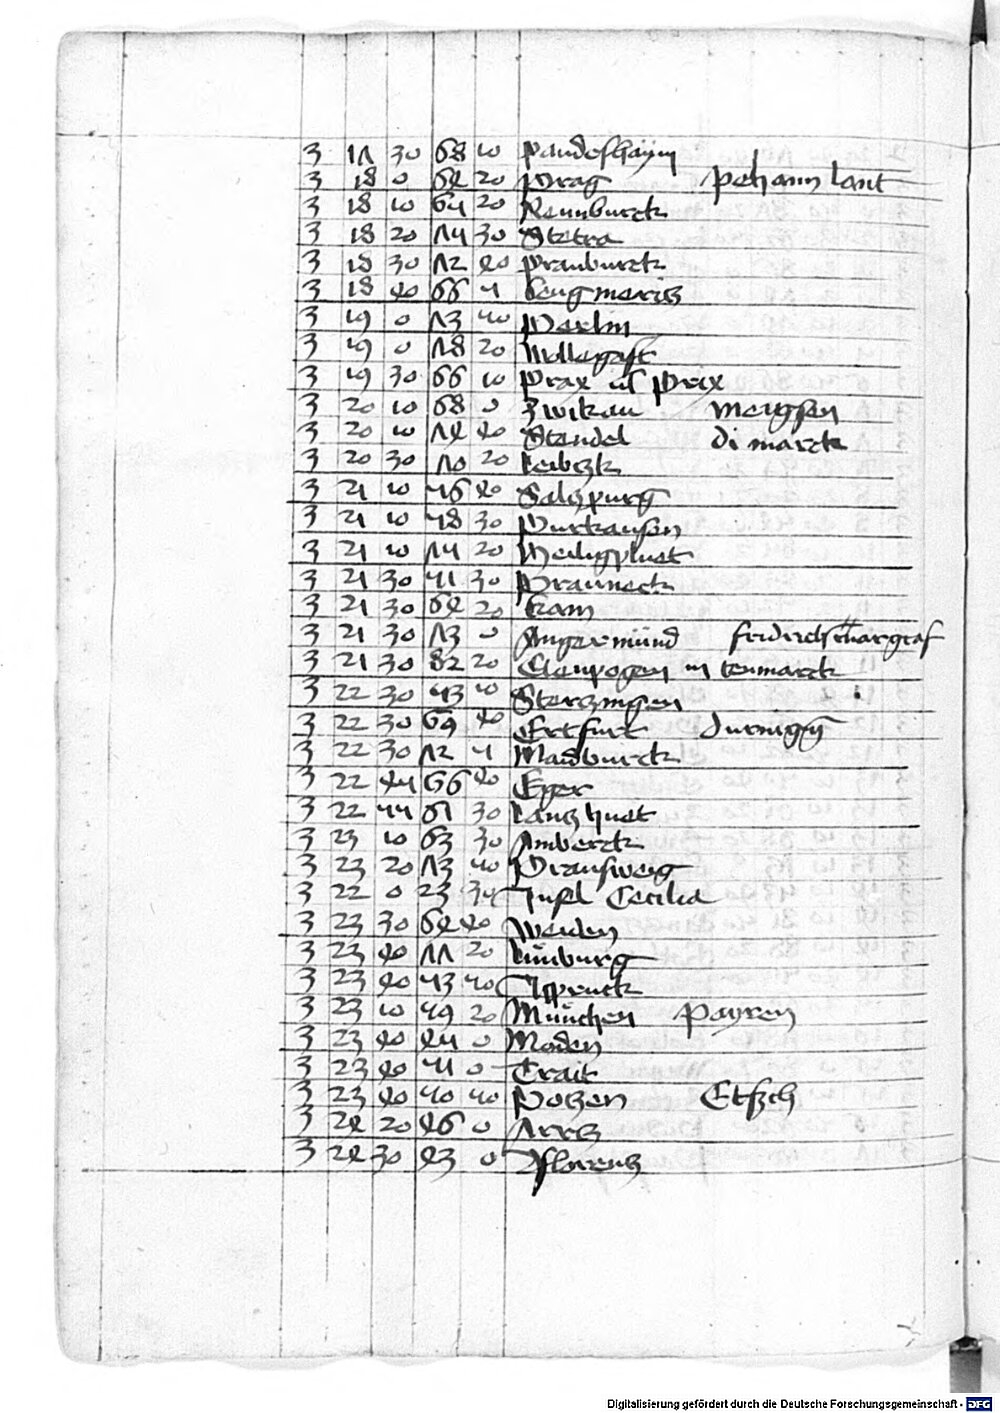 3 17 30 68 10 pandeshaym
3 18 0 64 20 Prag pehann lant
3 18 10 65 20 Rennburck
3 18 20 75 30 Stetra
3 18 30 72 40 pranburck
3 18 40 66 5
3 19 0 73 50 Perlin
3 19 0 78 20 Wollgast
3 19 30 66 10 Prax ul prax
3 20 10 68 0 Zwikau meigsen
3 20 10 74 40 Stendel di marck
3 20 30 70 20 Leibczk
3 21 10 56 40 Salczpurg
3 21 10 58 30 Purkausen
3 21 10 75 20 Heiligpluet
3 21 30 51 30 Prauneck
3 21 30 64 20 kam
3 21 30 73 0 Angermünd fridrich margraf
3 21 30 82 20 Elenpogen in tenmarck
3 22 30 53 10 Sterczingen
3 22 30 69 40 Ertfurt durnigen
3 22 30 72 5 Maidburck
3 22 45 66 40 Eger
3 22 55 61 30 Lanczhuet
3 23 10 63 30 Amberck
3 23 20 73 50 Praunsweig
3 22 0 23 35 Insel Cecilia
3 23 30 64 40 Weiden
3 23 40 77 20 Lünburg
3 23 40 53 50 Ispruck
3 23 10 59 20 München Payren
3 23 40 45 0 Moden
3 23 40 51 0 Trait
3 23 40 50 50 Poczen Etsch
3 24 20 46 0
3 24 30 43 0 Florencz
Digitalisierung gefördert durch die Deutsche Forschungsgemeinschaft - DFG